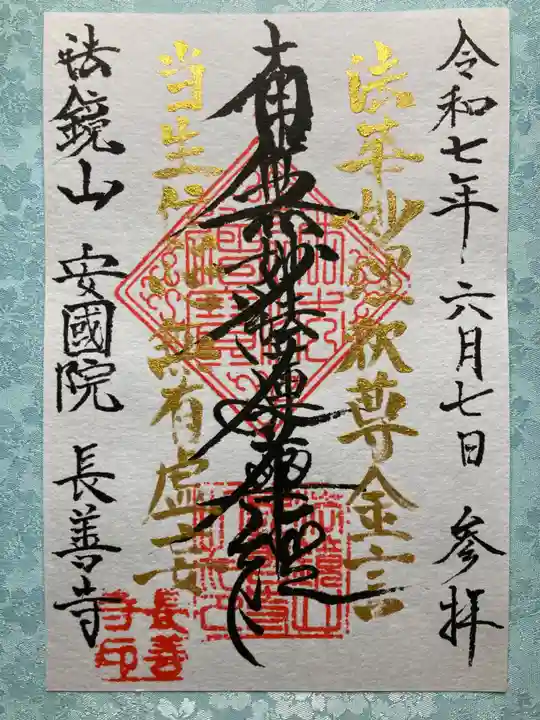 令和七年六月七日 参拝
法華妙理釈尊金言
南無妙法蓮華経
当生信心無有虚妄
法鏡山 安國院 長善寺
長善
寺印